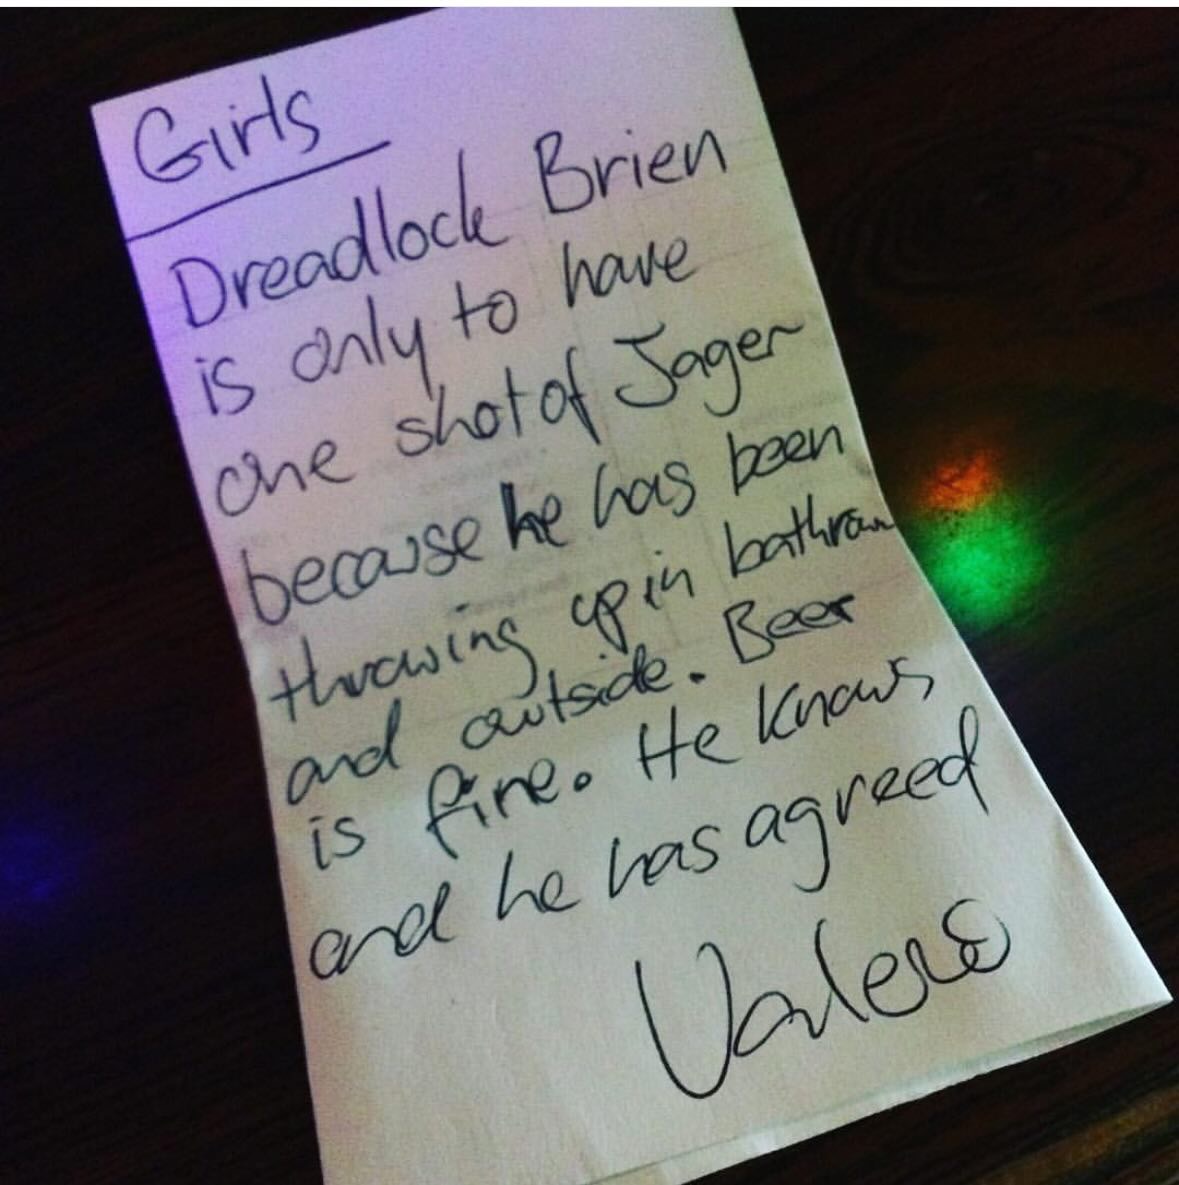 Girls
Dreadlock Brien
is only to have
one shot of Jager
because he has been
throwing up in bathroom
and outside. Beer
is fine. He knows
and he has agreed